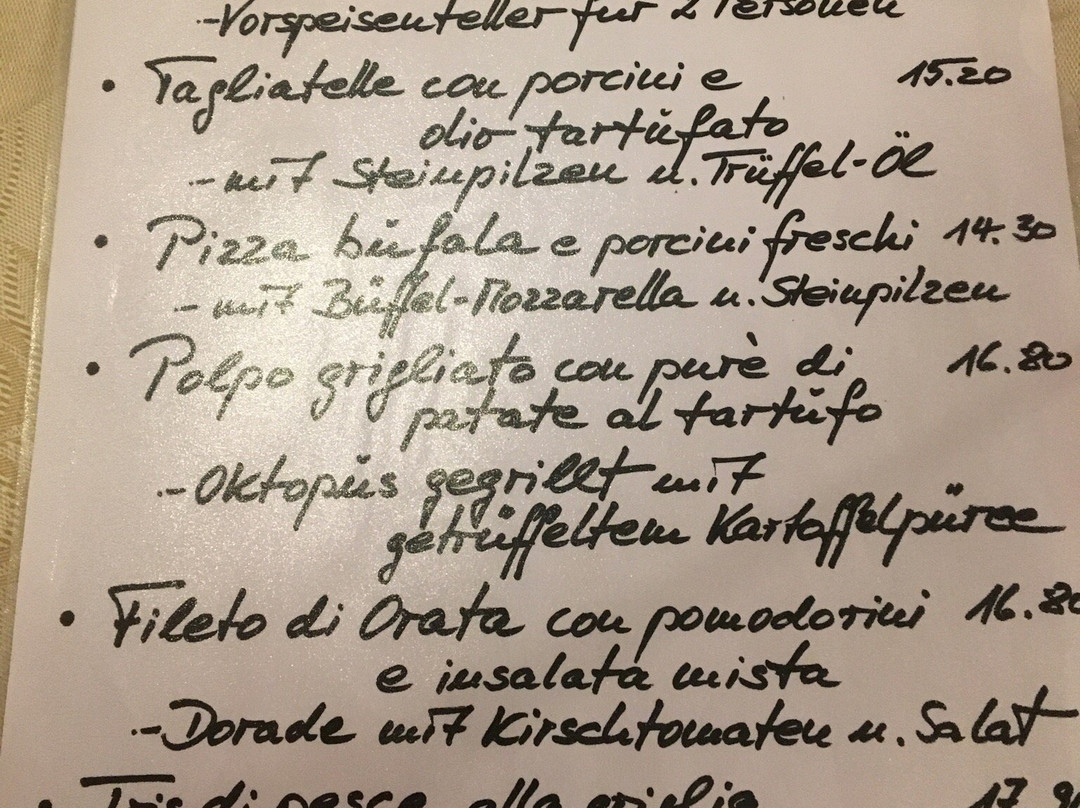 -Vorspeisenteller für 2 Personen
• Tagliatelle con porcini e 15.20
olio tartufato
-mit Steinpilzen u. Trüffel-Öl
• Pizza bufala e porcini freschi 14.30
-mit Büffel-Mozzarella u. Steinpilzen
• Polpo grigliato con purè di 16.80
patate al tartufo
-Oktopus gegrillt mit
getrüffeltem Kartoffelpüree
• Fileto di Orata con pomodorini 16.80
e insalata mista
-Dorade mit Kirschtomaten u. Salat
• Tris di pesce alla griglia 17.9